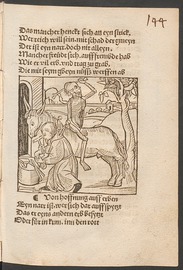 144
Das mancher henckt sich an eyn strick
Wer reich will sein, mit schad der gmeyn
Der ist eyn narr, doch nit alleyn
Mancher freüdt sich, auff frembde hab
Wie er vil erb, vnd trag zu grab
Die mit seym gbeyn nüss werffen ab
Von hoffnung auff erben
Eyn narr ist, wer sich dar auff spytzt
Das er eyns andern erb besytz
Oder für in kum, inn den rott